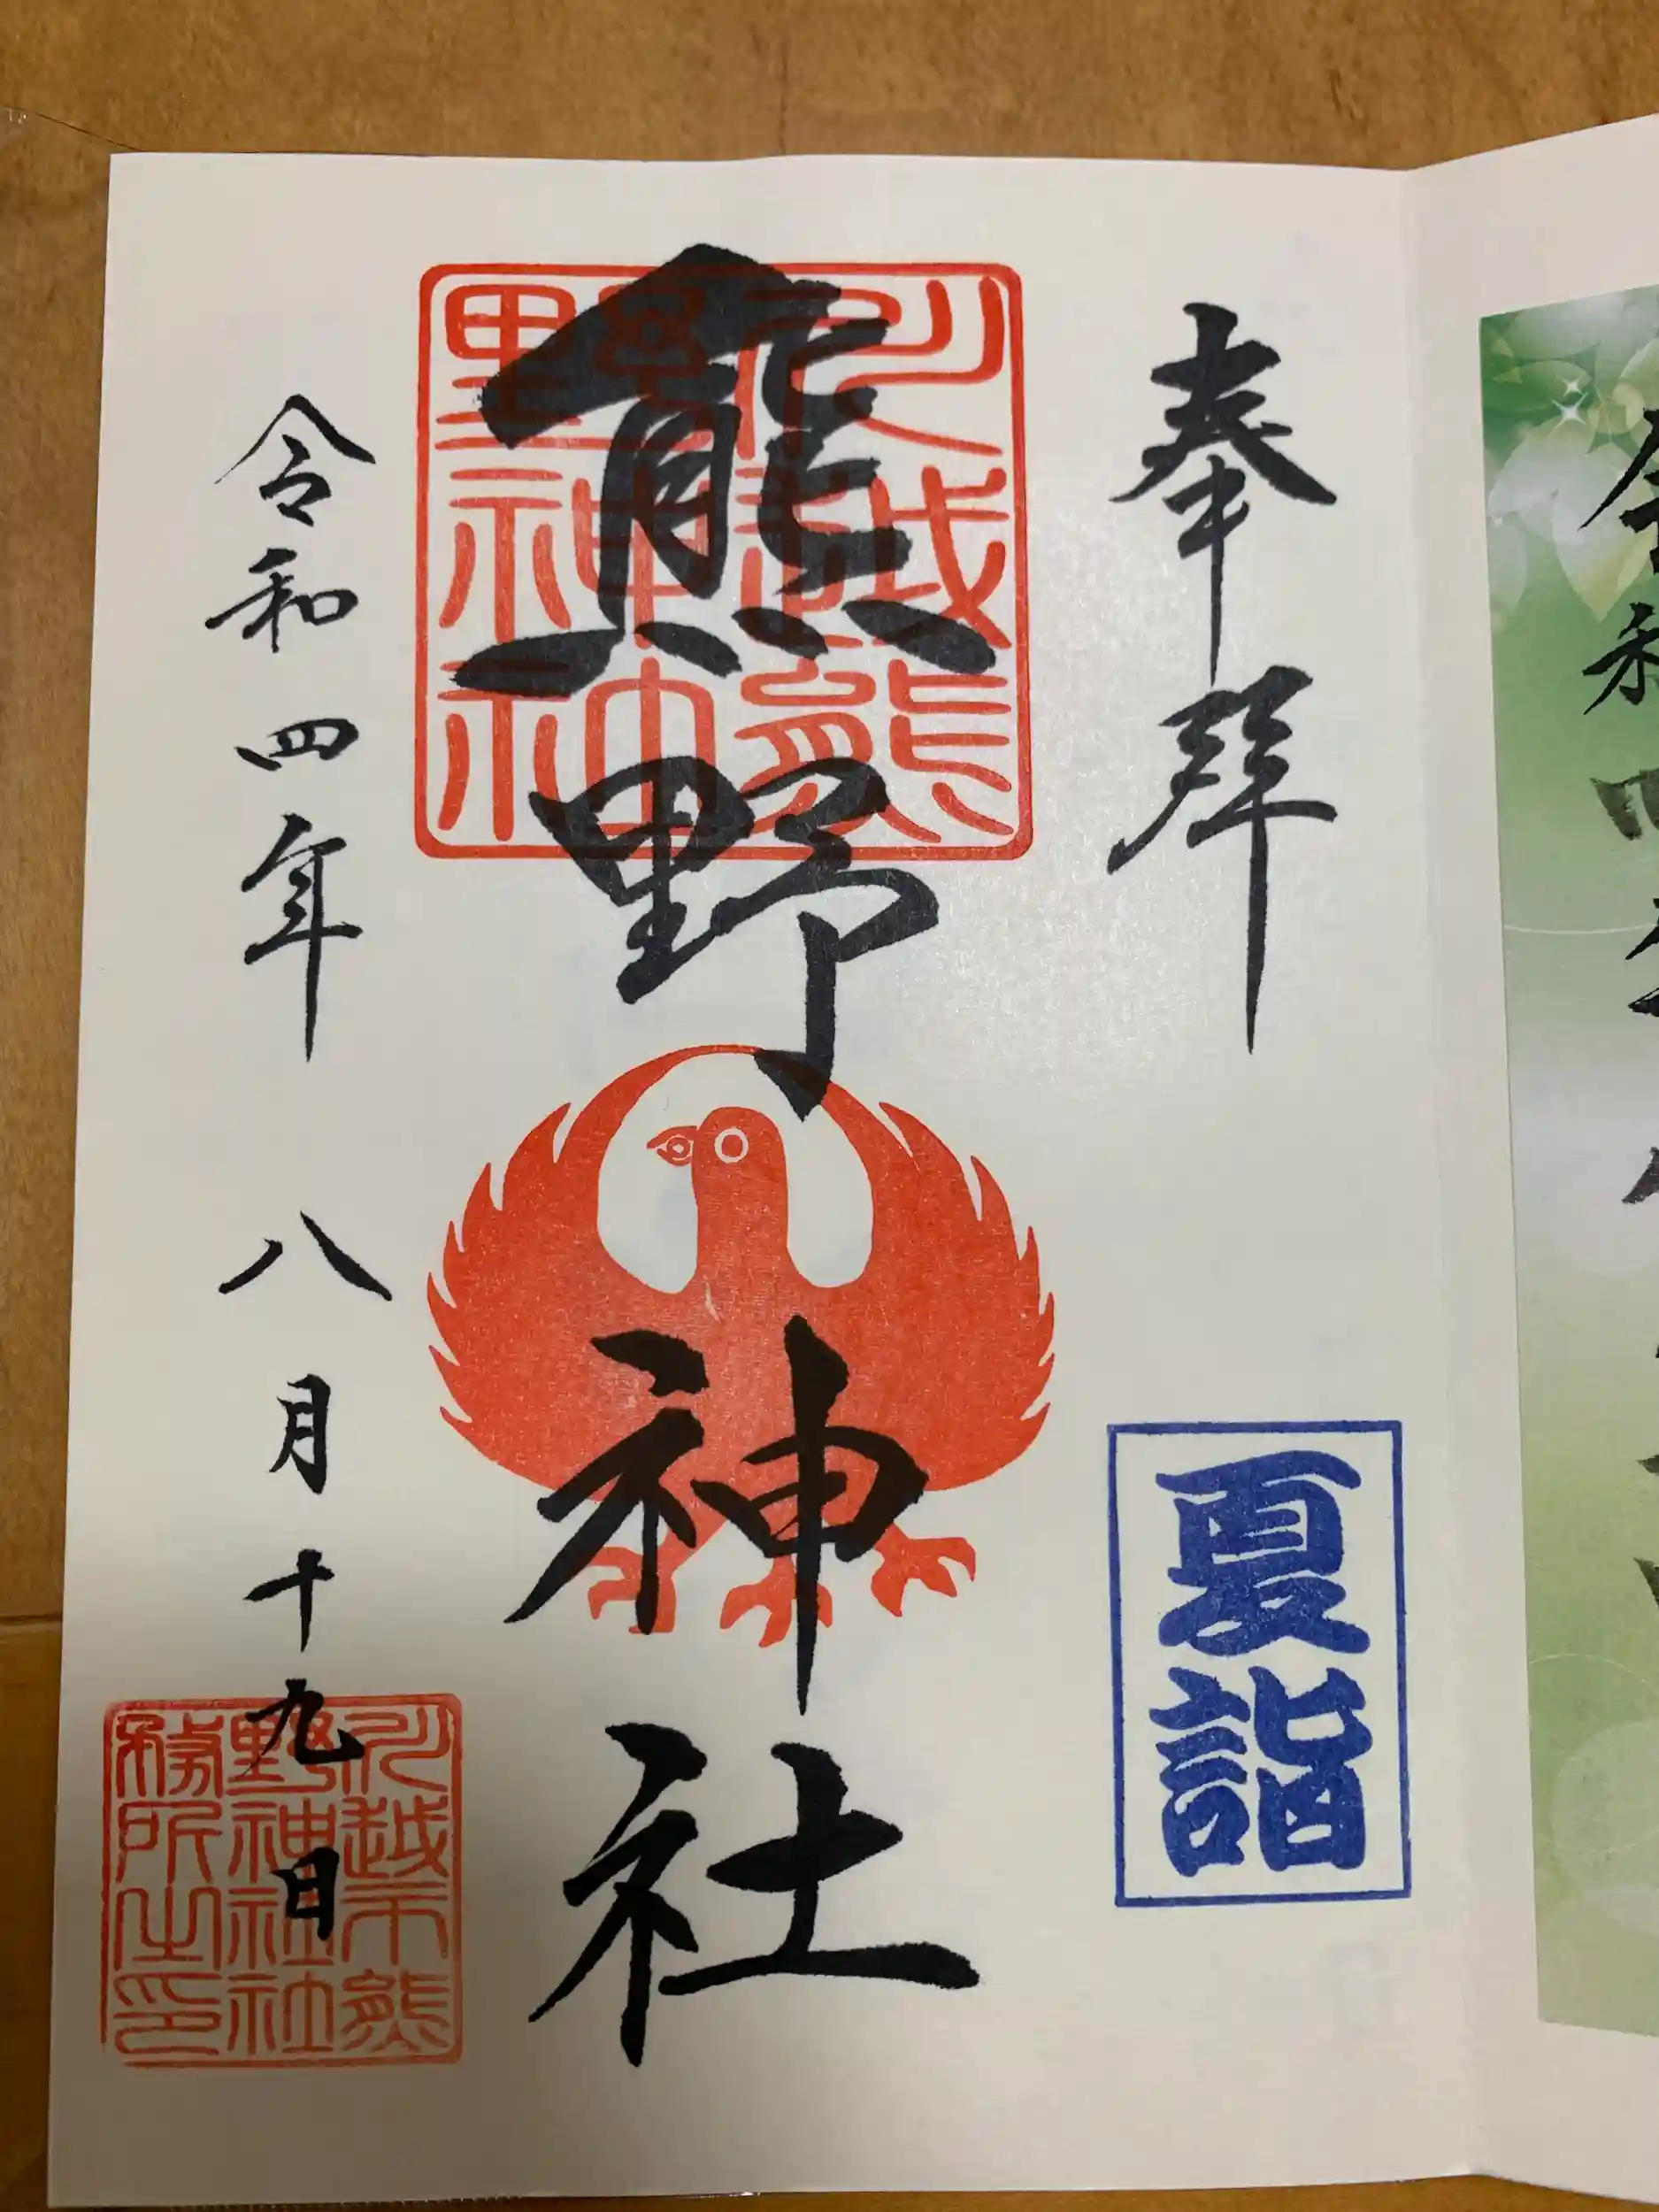 奉拝
夏詣
川越熊
野神神
熊野神社
令和四年 八月十九日
川越市熊
野神社社
務所之印
令和